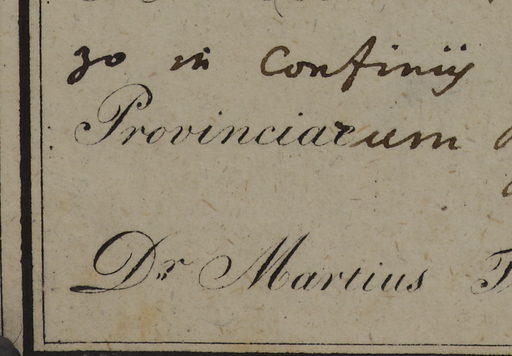 zo in Confinijs
Provinciarum
Dr Martius